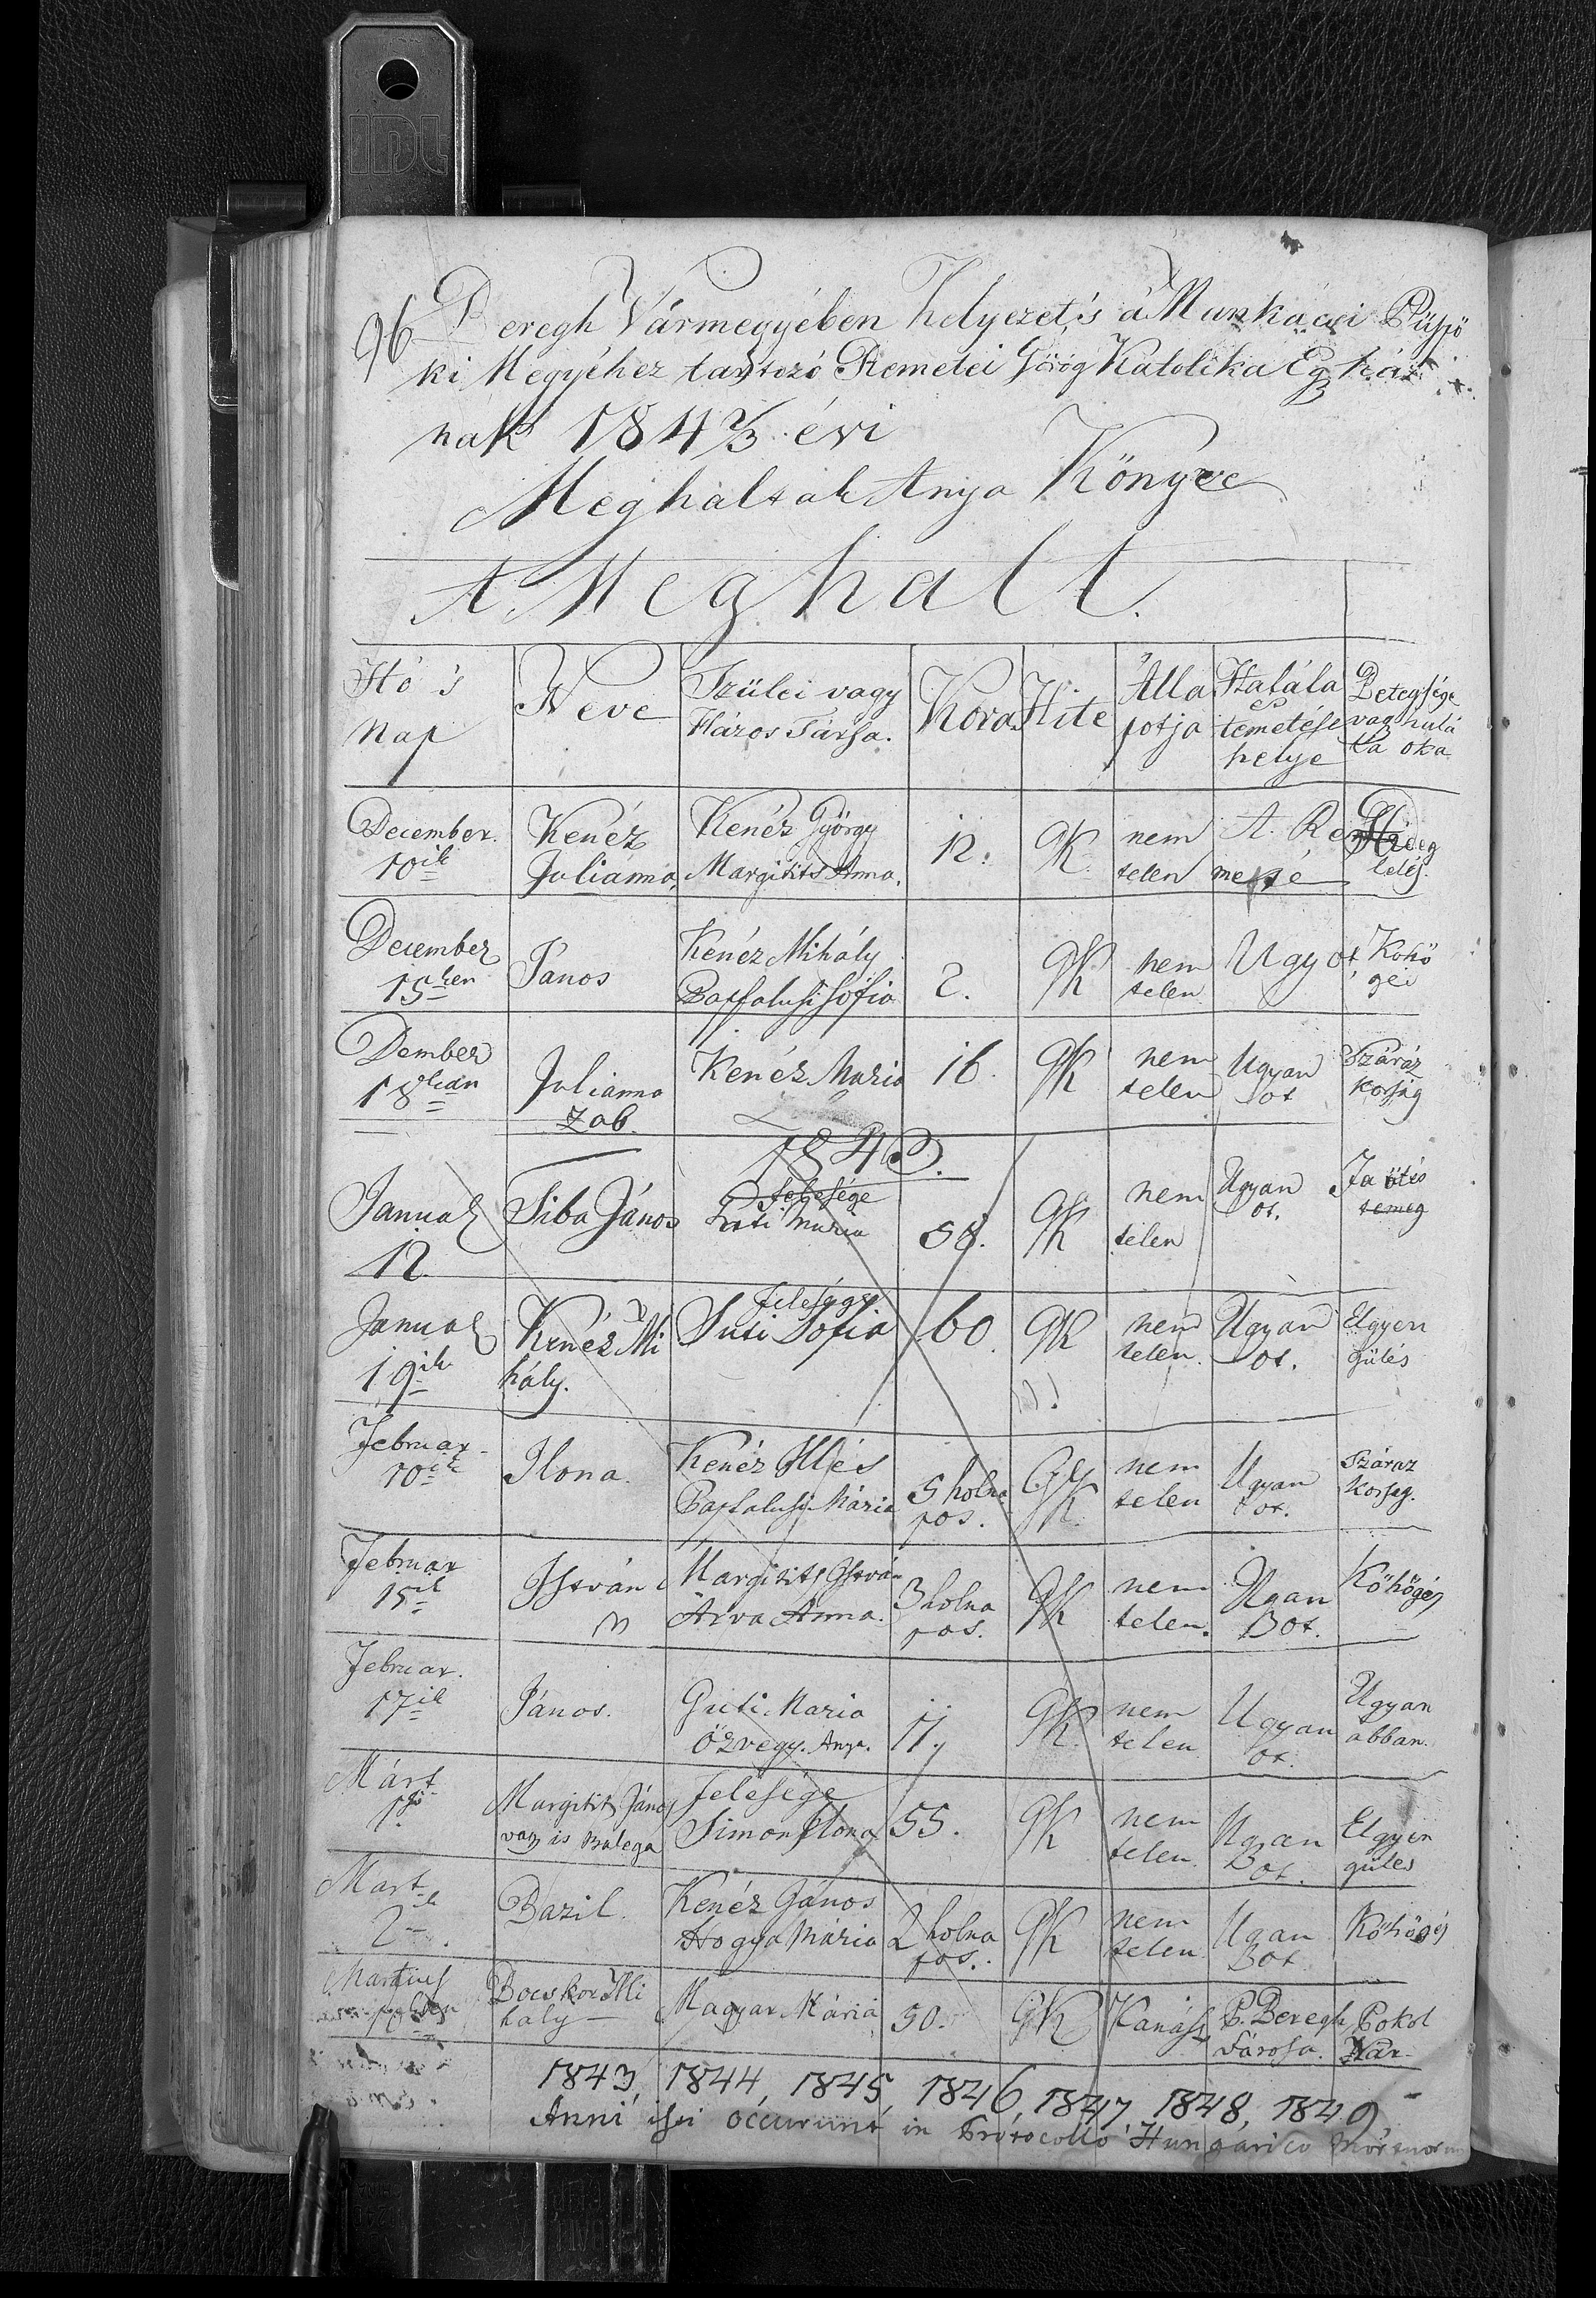 96
Beregh Vármegyében helyezet, s a Munkácsi Püspö
ki Megyéhez tartozó Remetei Görög Katolika Egyház
nak 184 2/3 évi
Meghaltak Anya Könyve
A Meghalt.
Hó s Nap | Neve | Szülei vagy Házos Társa. | Kora | Hite | Álla potja | Halála s temetése helye | Betegsége vagy halá la oka
December 10ik | Kenéz Juliánna, | Kenéz György Margitits Anna. | 12. | GK. | nem telen | A. Re mete | Hideg lelés.
December 15ken | János | Kenéz Mihály Papfalusi Sófia | 2. | GK | nem telen | Ugyot | Kohö géi
Dember 18kán | Juliánna Zab. | Kenéz Maria | 16. | GK | nem telen | Ugyan ot | Száráz Korság
1843.
Januar 12. | Siba János | felesége Mária | 58. | GK | nem telen | Ugyan ot. | temeg
Januar 19ik | Kenéz Mi hály. | felesége Suti Sofia | 60. | GK | nem telen. | Ugyan ot. | Elgyen gülés
Februar 10ik | Ilona. | Kenéz Illés Papfalusi Mária | 5 holna pos. | GK. | nem telen | Ugyan ot. | Száraz Korság.
Februar 15ik | István | Margitits István Árva Anna. | 3 holna pos. | GK | nem telen. | Ugan ot. | Köhögés
Februar. 17ik | János. | Guti Maria özvegy. Anya. | 11. | GK. | nem telen | Ugyan ot. | Ugyan abban.
Márt 1ső | Margitits János vagy is Balega | felesége Simon Ilona | 55. | GK | nem telen. | Ugan ot. | Elgyen gülés
Mart 2ik. | Bazil. | Kenéz János Hogya Mária | 2 holna pos. | GK | nem telen | Ugan ot | Köhögés
Martius | Bocskor Mi hály | Magyar Máriá | 50. | GK | Kanász | P. Beregh Városa. | Pokol Var
1843, 1844, 1845, 1846, 1847, 1848, 1849
Anni isti occurunt in Protocollo Hungarico Mortuorum